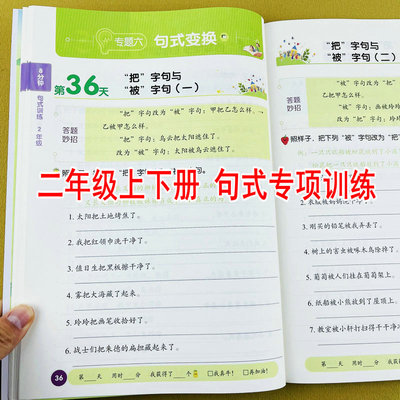 专题六 句式变换
8分钟
句式训练
2年级
第36天
“把”字句与
“被”字句（一）
答题
妙招
“把”字句改为“被”字句：甲把乙怎么样。
乙被甲怎么样。
“把”字句：乌云把太阳遮住了。
改为“被”字句：太阳被乌云遮住了。
二年级上下册 句式专项训练
1. 太阳把土地烤焦了。
2. 我把红领巾洗干净了。
3. 值日生把黑板擦干净了。
4. 雾把大海藏了起来。
5. 玲玲把画笔收拾好了。
6. 战士们把朱德的扁担藏起来了。
36
第 天 用时 分 我获得了 个
我真牛！ 再加油！
“把”字句与
“被”字句（二）
答题
妙招
照样子，把下列“被”字句改为“把”
3. 刚买的铅笔被我弄丢了。
4. 树上的害虫被啄木鸟除掉了。
5. 葡萄被人们挂在葡萄架上。
6. 纸船被小熊放到了屋顶上。
7. 教室被小轩打扫得干干净
第 天 用时 分